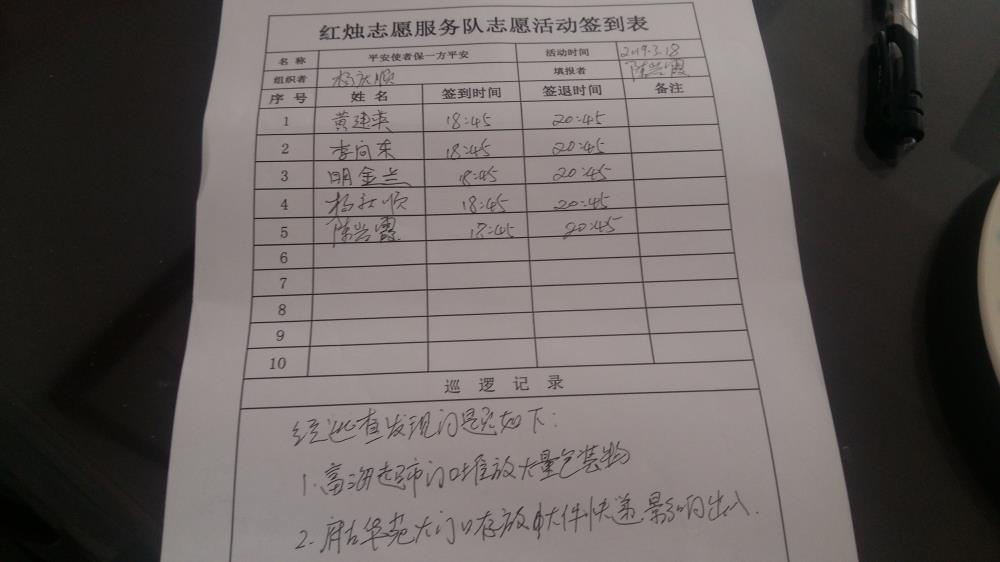 红烛志愿服务队志愿活动签到表
名称 平安使者保一方平安 活动时间 2019.3.18
组织者 杨秋顺 填报者 陈兴霞
序号 姓名 签到时间 签退时间 备注
1 黄建英 18:45 20:45
2 李向东 18:45 20:45
3 明金兰 18:45 20:45
4 杨秋顺 18:45 20:45
5 陈兴霞 18:45 20:45
6
7
8
9
10
巡逻记录
经巡查发现问题如下:
1.富海超市门口堆放大量包装物
2.府右华苑大门口存放大件快递,影响出入.